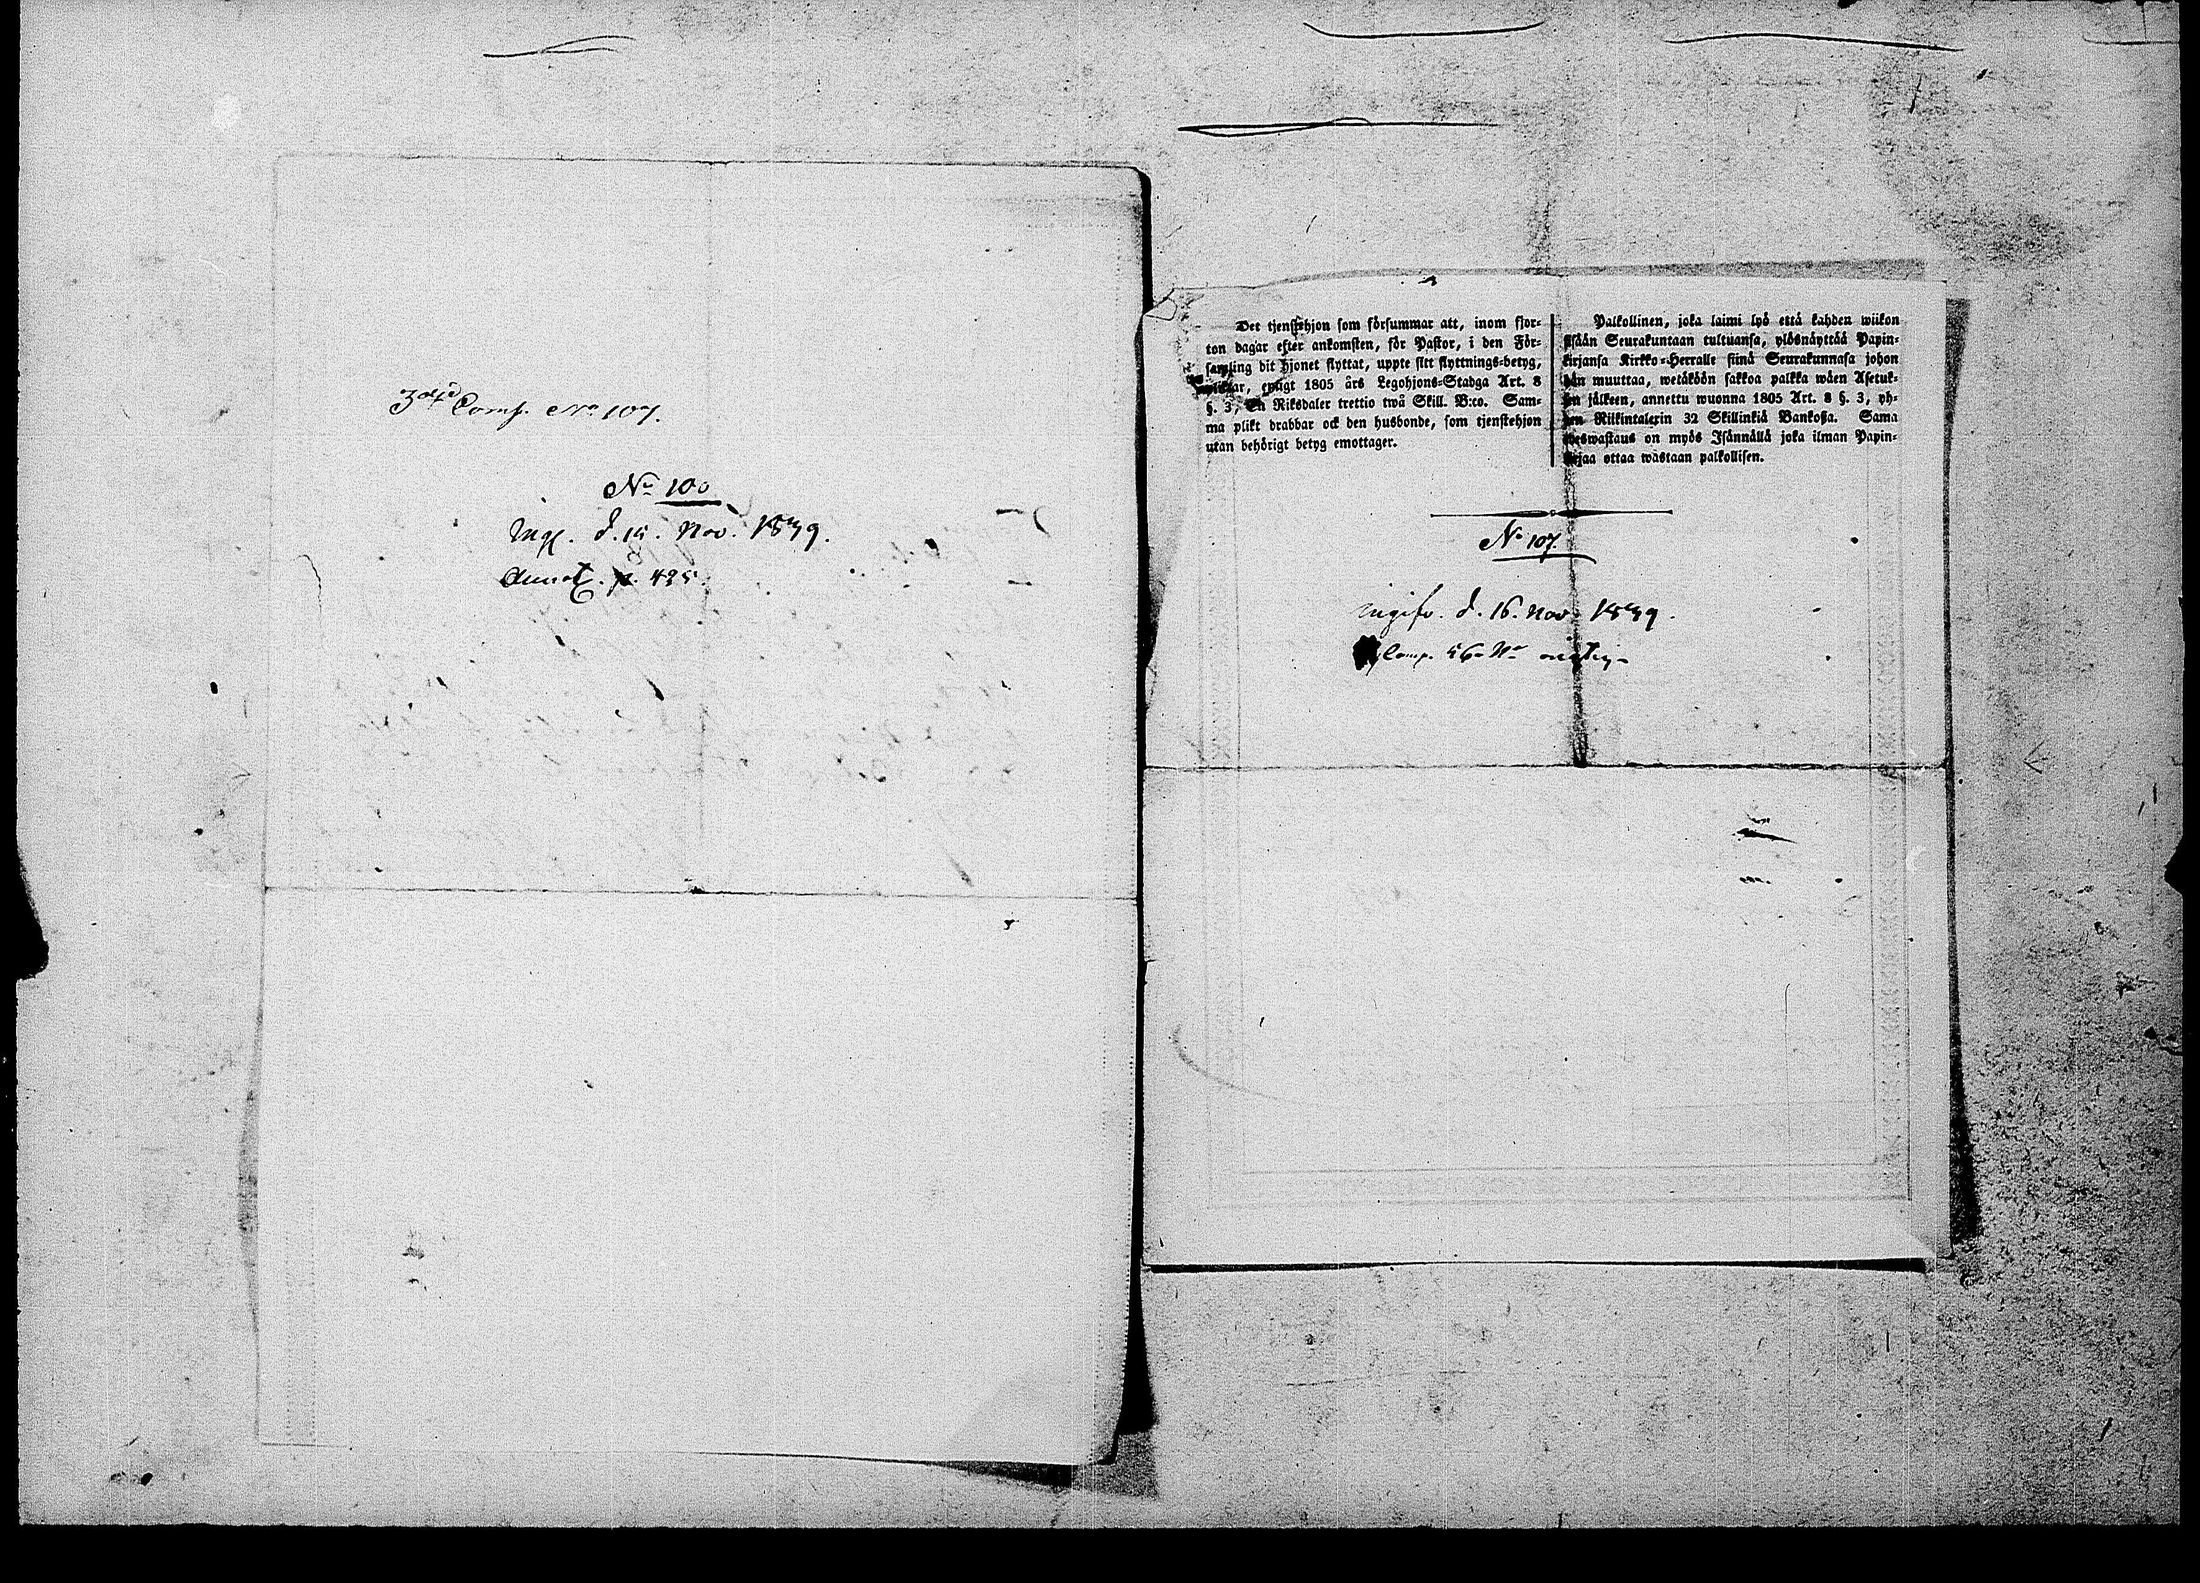 Comp. No 107.
No 100
Ingf. d. 15. Nov. 1839.
Annot. p. 425.
Det tjenstehjon som försummar att, inom fjor-
ton dagar efter ankomsten, för Pastor, i den För-
samling dit hjonet flyttat, uppte sitt flyttnings-betyg,
pliktar, enligt 1805 års Legohjons-Stadga Art. 8
§. 3, En Riksdaler trettio twå Skill. B:co. Sam-
ma plikt drabbar ock den husbonde, som tjenstehjon
utan behörigt betyg emottager.
Palkollinen, joka laimi lyö että kahden wiikon
sisään Seurakuntaan tultuansa, ylösnäyttää Papin-
kirjansa Kirkko-Herralle siinä Seurakunnasa johon
hän muuttaa, wetäköön sakkoa palkka wäen Asetuk-
sen jälkeen, annettu wuonna 1805 Art. 8 §. 3, yh-
den Riikintalerin 32 Skillinkiä Bankoßa. Sama
edeswastaus on myös Isännällä joka ilman Papin-
kirjaa ottaa wastaan palkollisen.
No 107.
Ingifv. d. 16. Nov. 1839.
Comp. 56. No